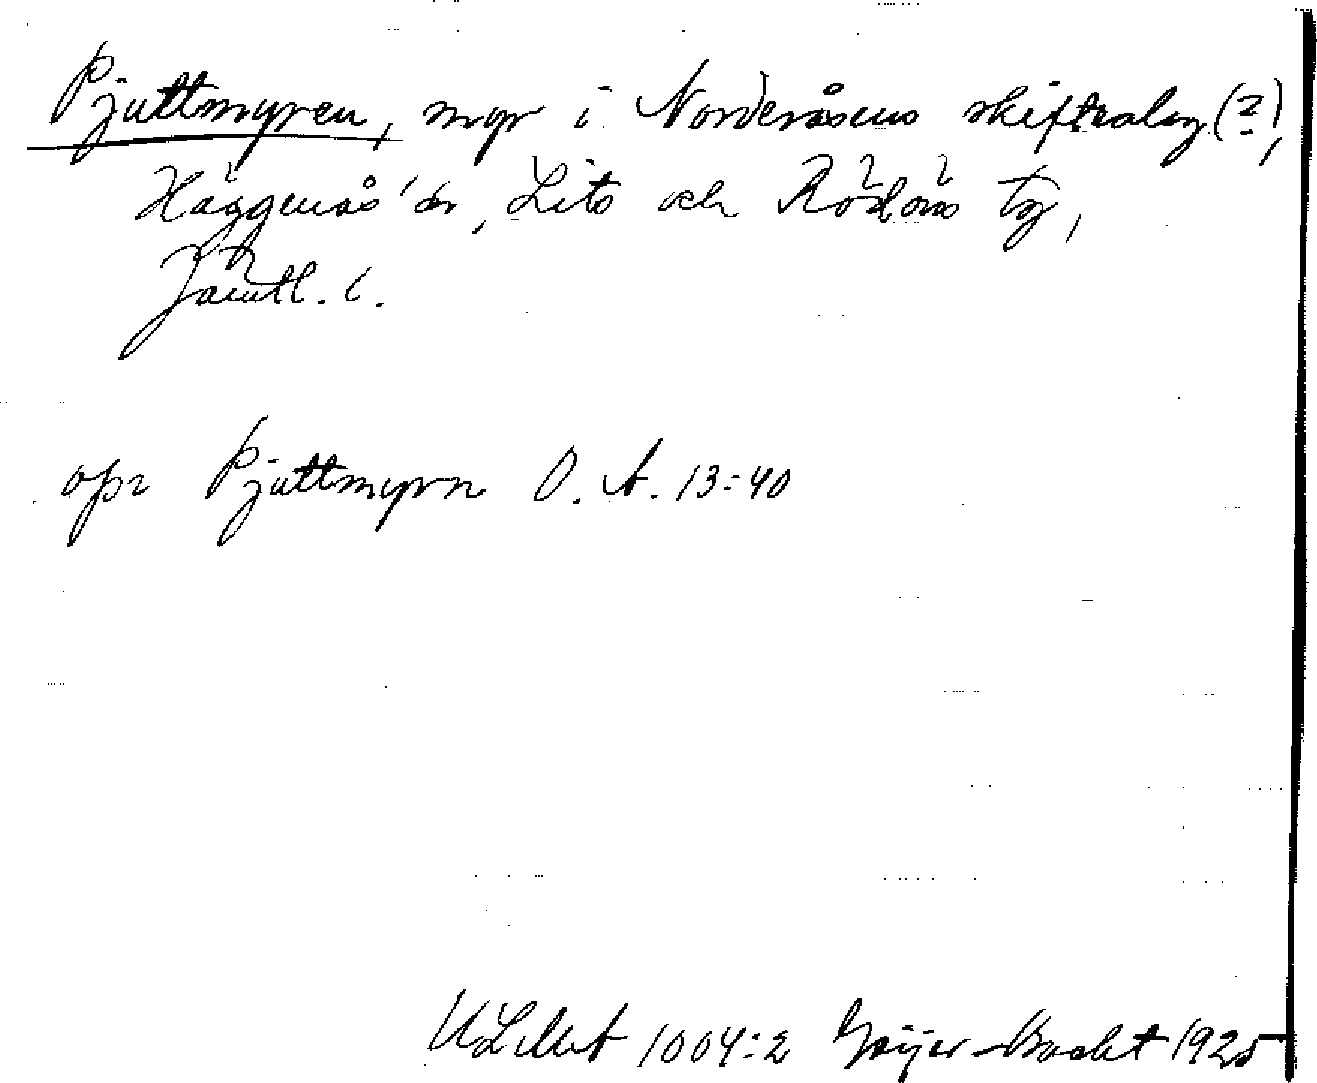 Pjuttmyren, myr i Norderåsens skifteslag (?),
Häggenås sn, Lits och Rödöns tg,
Jämtl. l.
opr Pjuttmyrn O. A. 13:40
ULMA 1004:2 Geijer 1925